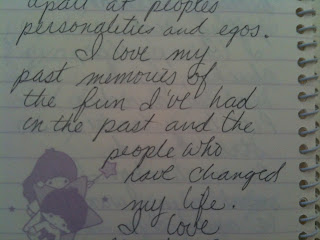 apart at peoples
persongleties and egos.
I love my
past memories of
the fun I've had
in the past and the
people who
have changed
my life.
I love